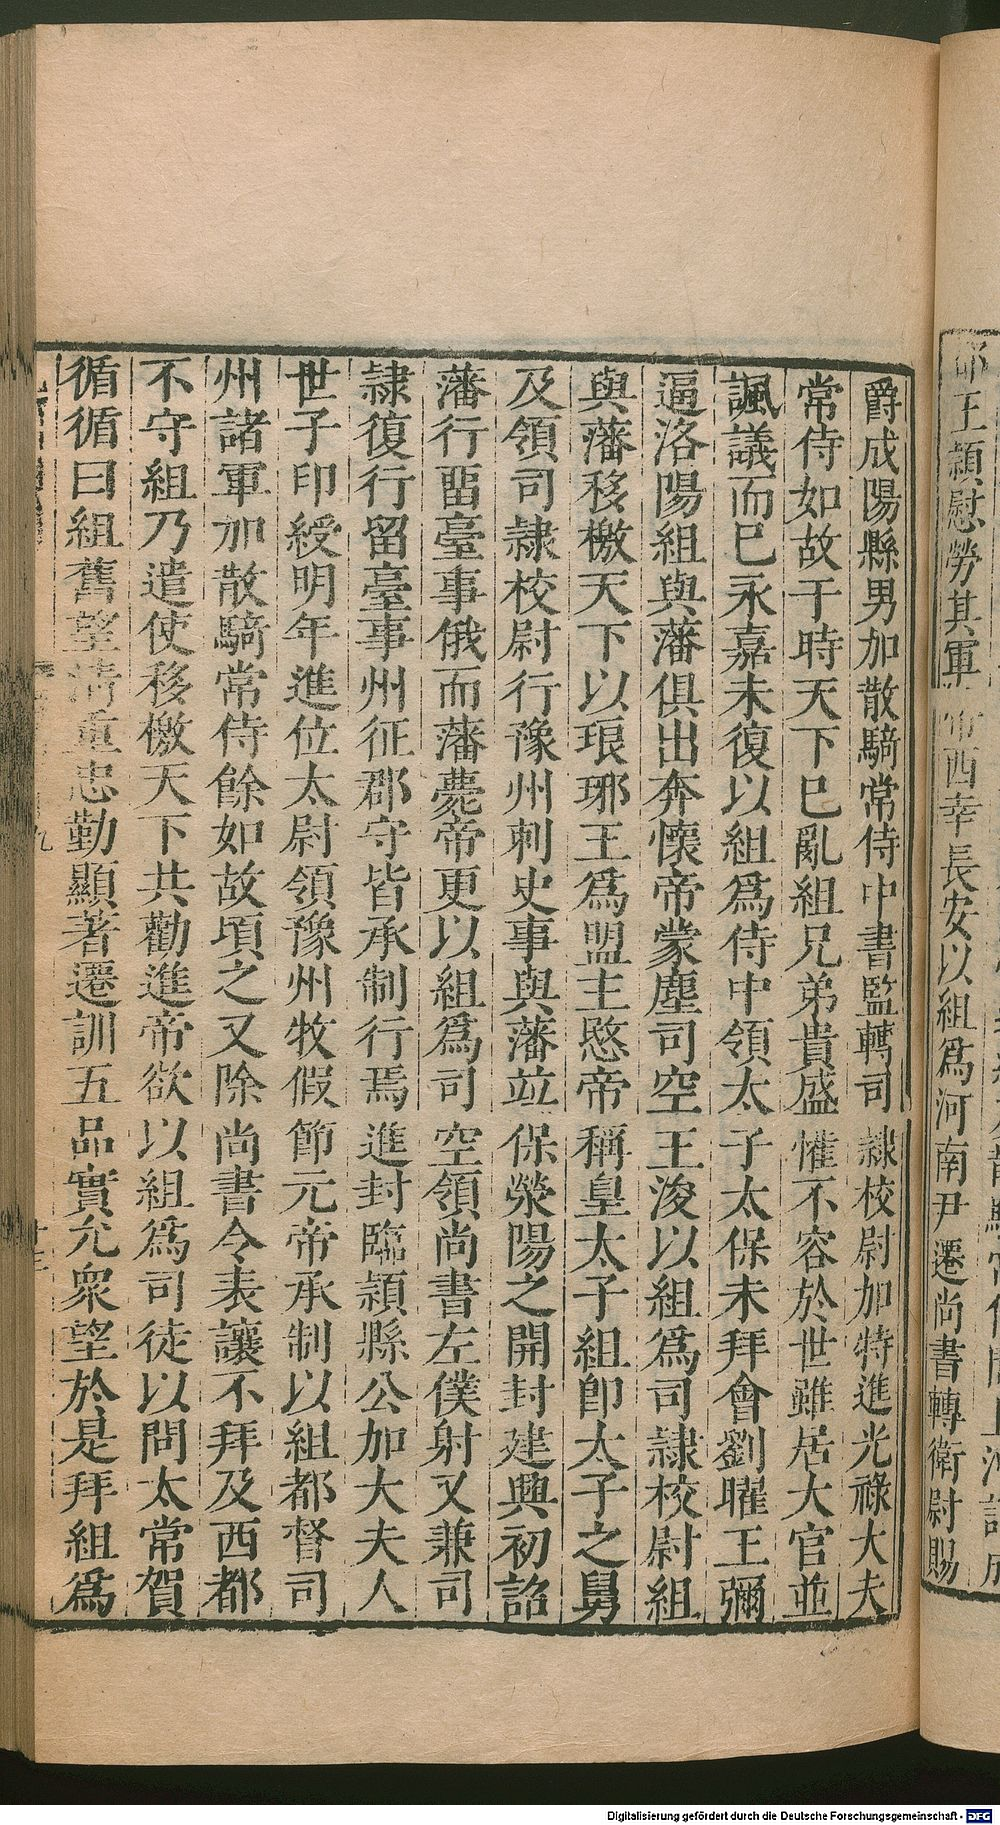 王穎慰勞其軍
西幸長安以組爲河南尹遷尚書轉衛尉賜
爵成陽縣男加散騎常侍中書監轉司隷校尉加特進光祿大夫
常侍如故于時天下巳亂組兄弟貴盛懼不容於世雖居大官並
諷議而巳永嘉未復以組爲侍中領太子太保未拜會劉曜王彌
逼洛陽組與藩俱出奔懷帝蒙塵司空王浚以組爲司隷校尉組
與藩移檄天下以琅琊王爲盟主愍帝稱皇太子組卽太子之舅
及領司隷校尉行豫州刺史事與藩竝保滎陽之開封建興初詔
藩行畱臺事俄而藩薨帝更以組爲司空領尚書左僕射又兼司
隷復行留臺事州征郡守皆承制行焉進封臨穎縣公加大夫人
世子印綬明年進位太尉領豫州牧假節元帝承制以組都督司
州諸軍加散騎常侍餘如故頃之又除尚書令表讓不拜及西都
不守組乃遣使移檄天下共勸進帝欲以組爲司徒以問太常賀
循循曰組舊望清重忠勤顯著遷訓五品實允衆望於是拜組爲
Digitalisierung gefördert durch die Deutsche Forschungsgemeinschaft - DFG